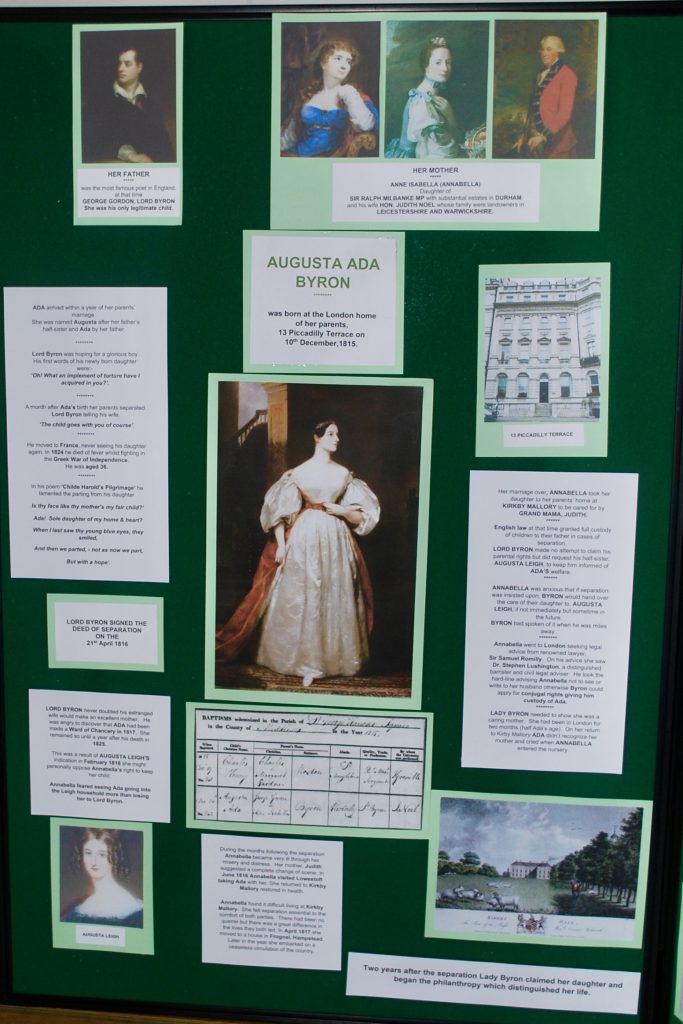 HER FATHER
*****
was the most famous poet in England,
at that time
GEORGE GORDON, LORD BYRON
She was his only legitimate child.
HER MOTHER
*****
ANNE ISABELLA (ANNABELLA)
Daughter of
SIR RALPH MILBANKE MP with substantial estates in DURHAM
and his wife HON. JUDITH NOEL whose family were landowners in
LEICESTERSHIRE AND WARWICKSHIRE.
AUGUSTA ADA
BYRON
********
was born at the London home
of her parents,
13 Piccadilly Terrace on
10th December,1815.
13 PICCADILLY TERRACE
ADA arrived within a year of her parents'
marriage.
She was named Augusta after her father's
half-sister and Ada by her father.
********
Lord Byron was hoping for a glorious boy.
His first words of his newly born daughter
were:-
'Oh! What an implement of torture have I
acquired in you?'.
********
A month after Ada's birth her parents separated.
Lord Byron telling his wife,
'The child goes with you of course'.
********
He moved to France, never seeing his daughter
again. In 1824 he died of fever whilst fighting in
the Greek War of Independence.
He was aged 36.
********
In his poem 'Childe Harold's Pilgrimage' he
lamented the parting from his daughter.
Is thy face like thy mother's my fair child?'
Ada! Sole daughter of my home & heart?
When I last saw thy young blue eyes, they
smiled,
And then we parted, - not as now we part,
But with a hope'.
LORD BYRON SIGNED THE
DEED OF SEPARATION
ON THE
21st April 1816
LORD BYRON never doubted his estranged
wife would make an excellent mother. He
was angry to discover that ADA had been
made a Ward of Chancery in 1817. She
remained so until a year after his death in
1825.
This was a result of AUGUSTA LEIGH'S
indication in February 1816 she might
personally oppose Annabella's right to keep
her child.
Annabella feared seeing Ada going into
the Leigh household more than losing her
to Lord Byron.
AUGUSTA LEIGH
BAPTISMS solemnized in the Parish of
in the County of
in the Year 18
When
Baptized.
Child's
Christian Name.
Parent's Name.
Christian
Surname.
Abode.
Quality, Trade,
or Profession.
By whom
the Ceremony
was performed.
Charles
Charles
Augusta
Ada
Byron
During the months following the separation
Annabella became very ill through her
misery and distress. Her mother, Judith
suggested a complete change of scene. In
June 1816 Annabella visited Lowestoft
taking Ada with her. She returned to Kirkby
Mallory restored in health.
Annabella found it difficult living at Kirkby
Mallory. She felt separation essential to the
comfort of both parties. There had been no
quarrel but there was a great difference in
the lives they both led. In April 1817 she
moved to a house in Frognel, Hampstead.
Later in the year she embarked on a
ceaseless circulation of the country.
Her marriage over, ANNABELLA took her
daughter to her parents' home at
KIRKBY MALLORY to be cared for by
GRAND MAMA, JUDITH.
******
English law at that time granted full custody
of children to their father in cases of
separation.
LORD BYRON made no attempt to claim his
parental rights but did request his half-sister,
AUGUSTA LEIGH, to keep him informed of
ADA'S welfare.
******
ANNABELLA was anxious that if separation
was insisted upon, BYRON would hand over
the care of their daughter to, AUGUSTA
LEIGH, if not immediately but sometime in
the future.
BYRON had spoken of it when he was miles
away.
Annabella went to London seeking legal
advice from renowned lawyer,
Sir Samuel Romilly. On his advice she saw
Dr. Stephen Lushington, a distinguished
barrister and civil legal adviser. He took the
hard-line advising Annabella not to see or
write to her husband otherwise Byron could
apply for conjugal rights giving him
custody of Ada.
LADY BYRON needed to show she was a
caring mother. She had been in London for
two months (half Ada's age). On her return
to Kirby Mallory ADA didn't recognize her
mother and cried when ANNABELLA
entered the nursery.
KIRKBY HALL
Two years after the separation Lady Byron claimed her daughter and
began the philanthropy which distinguished her life.